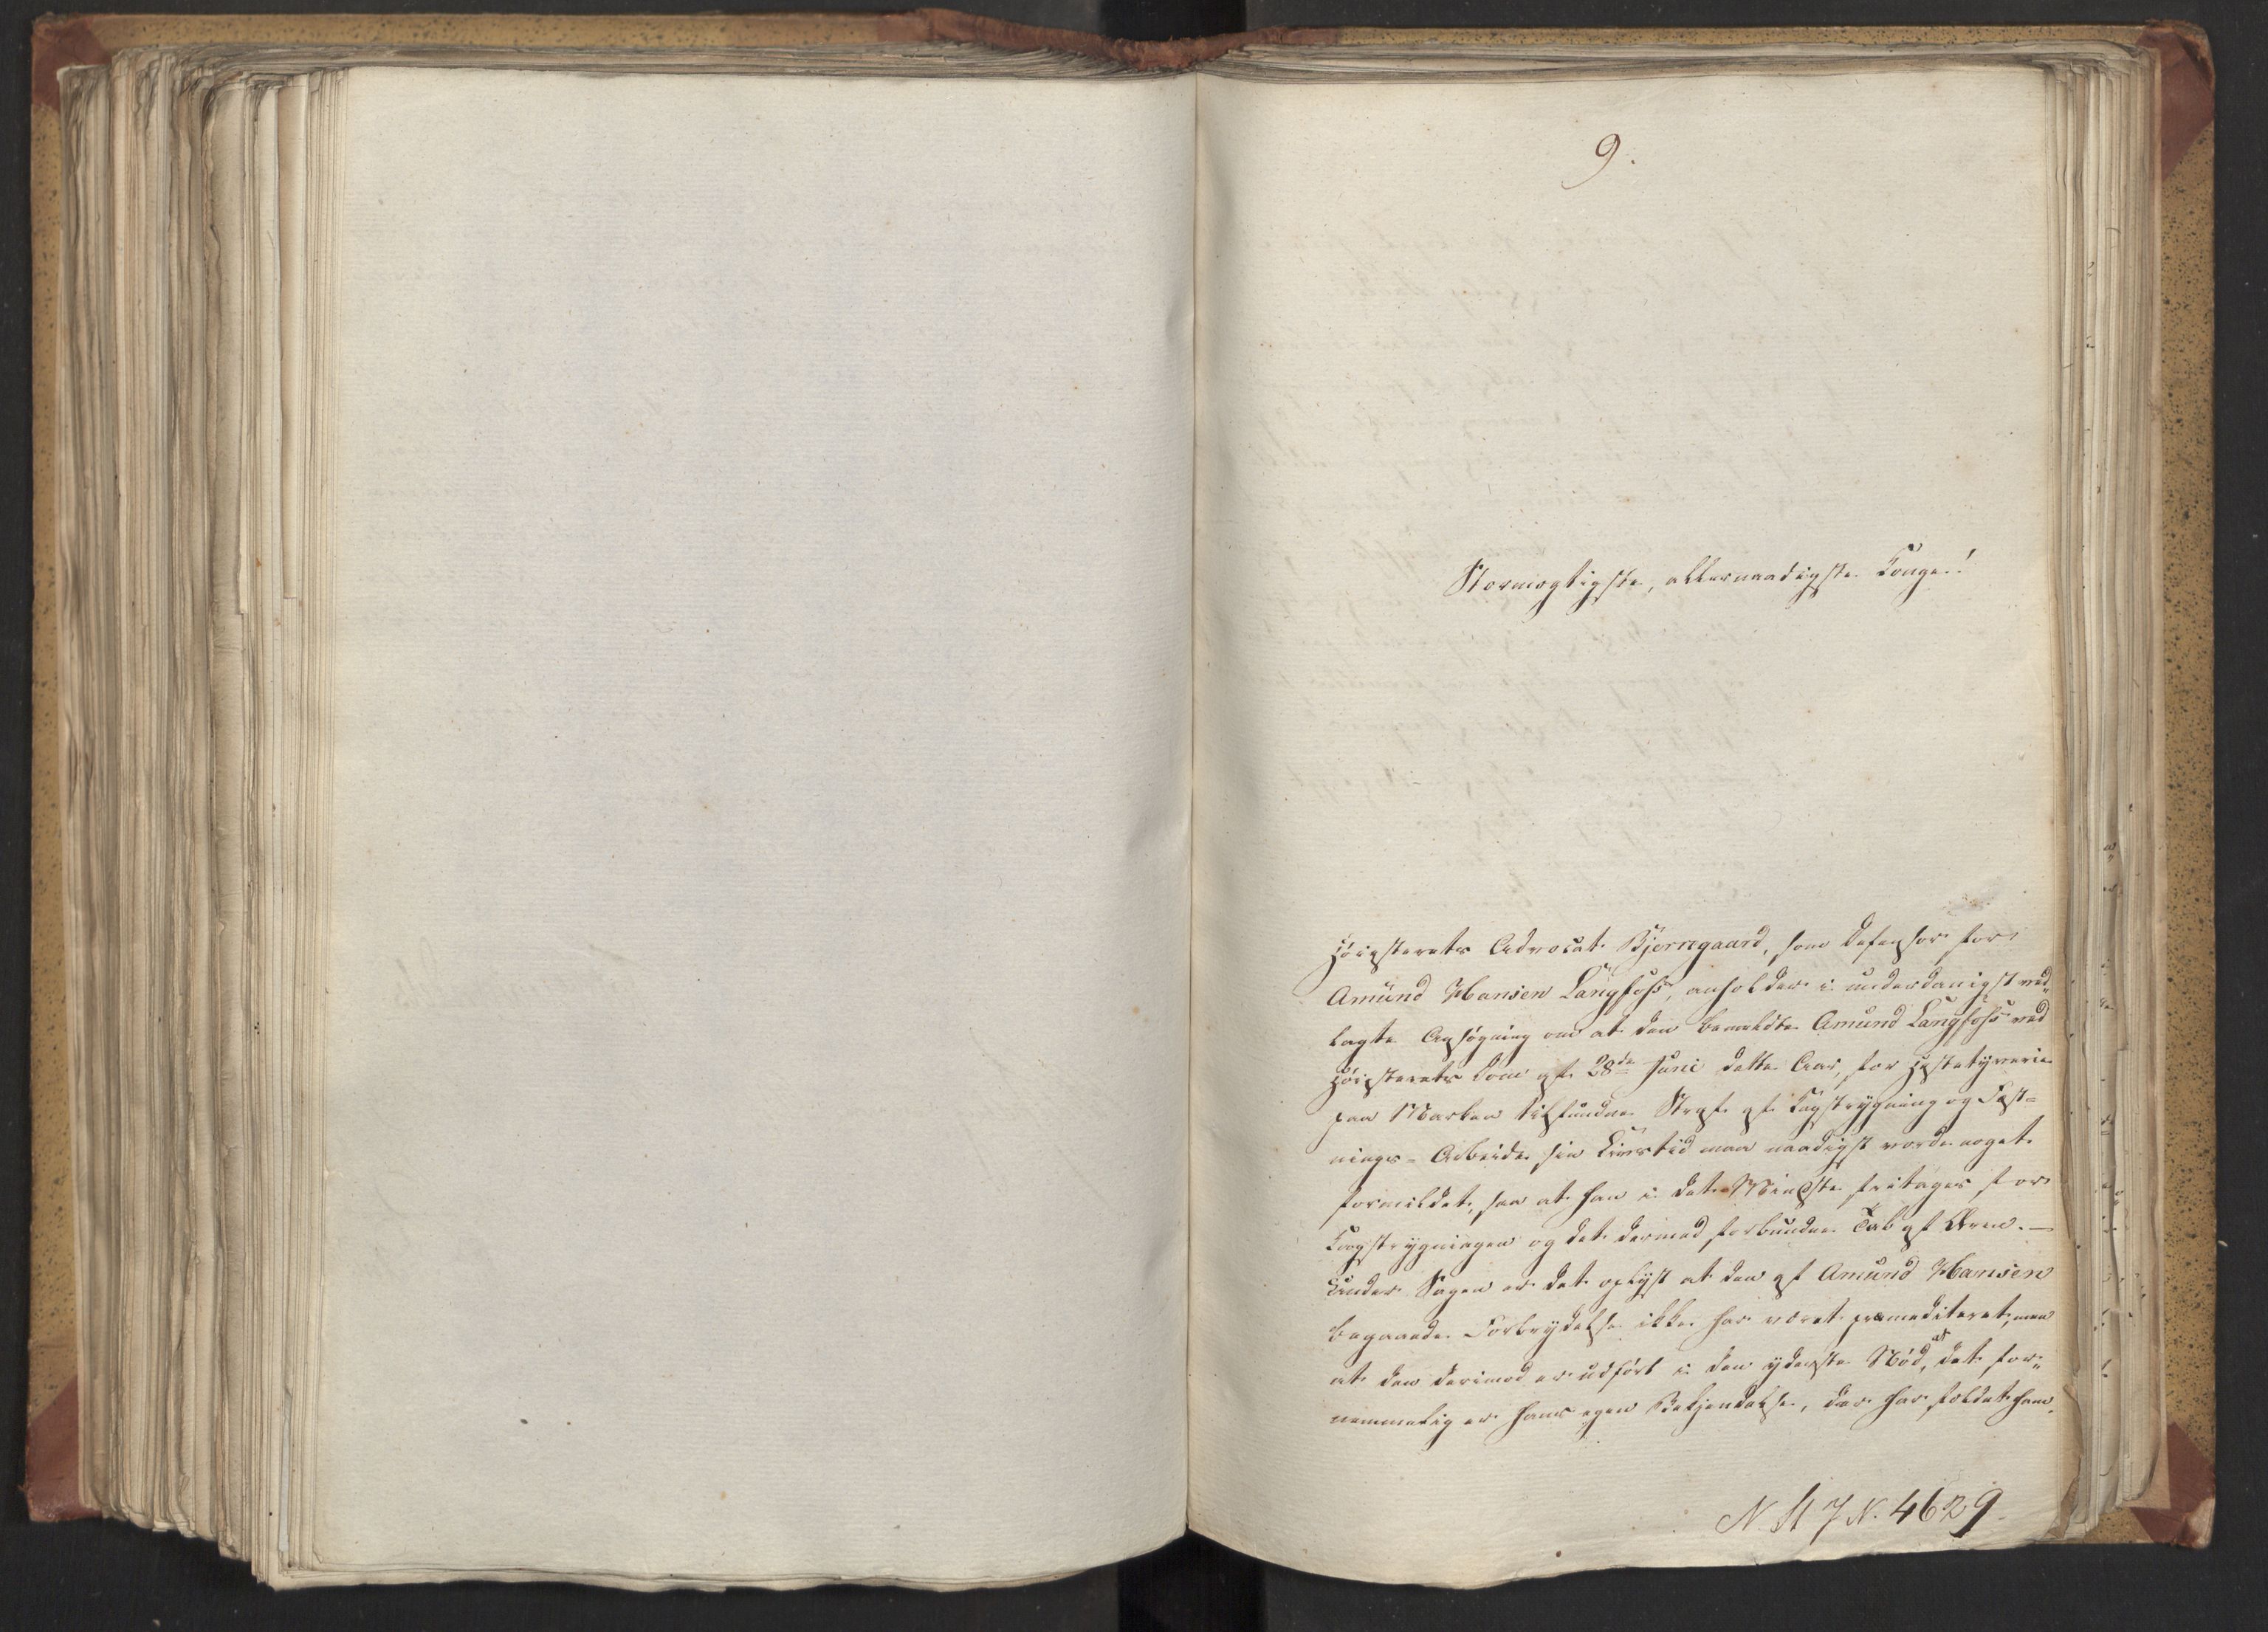 9.
Stormægtigste, allernaadigste Konge!
Høiesterets Advocat Bjerregaard, som Defensor for
Amund Hansen Langfoss, anholder i underdanigst ved„
lagte Ansøgning om at den bemeldte Amund Langfoss ved
Høiesterets Dom af 28de Juni dette Aar, for Hestetyverie
paa Marken tilfundne Straf af Kagstrygning og Fæst=
nings-Arbeide sin Livstid maa naadigst vorde noget
formildet, saa at han i det Mindste fritages for
Kagstrygningen og det dermed forbundne Tab af Æren. —
Under Sagen er det oplyst at den af Amund Hansen
begaaede Forbrydelse ikke har været præmediteret, men
at den derimod er udført i den yderste Nød, at det for„
nemmelig er hans egen Bekjendelse, der har fældet ham.
N. St J N. 4629.